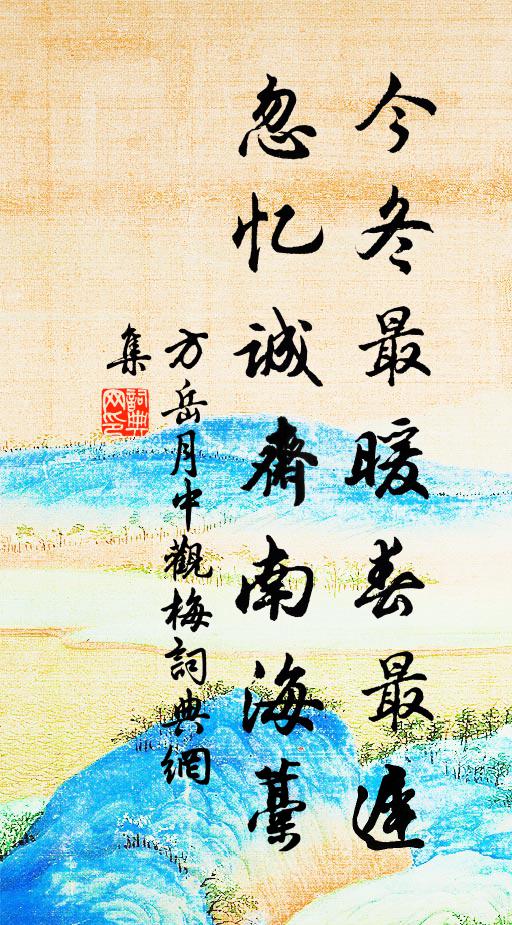 今冬最暖春最遲
忽忆誠齋南海藁
方岳月中觀梅詞典網
集
詞典网印